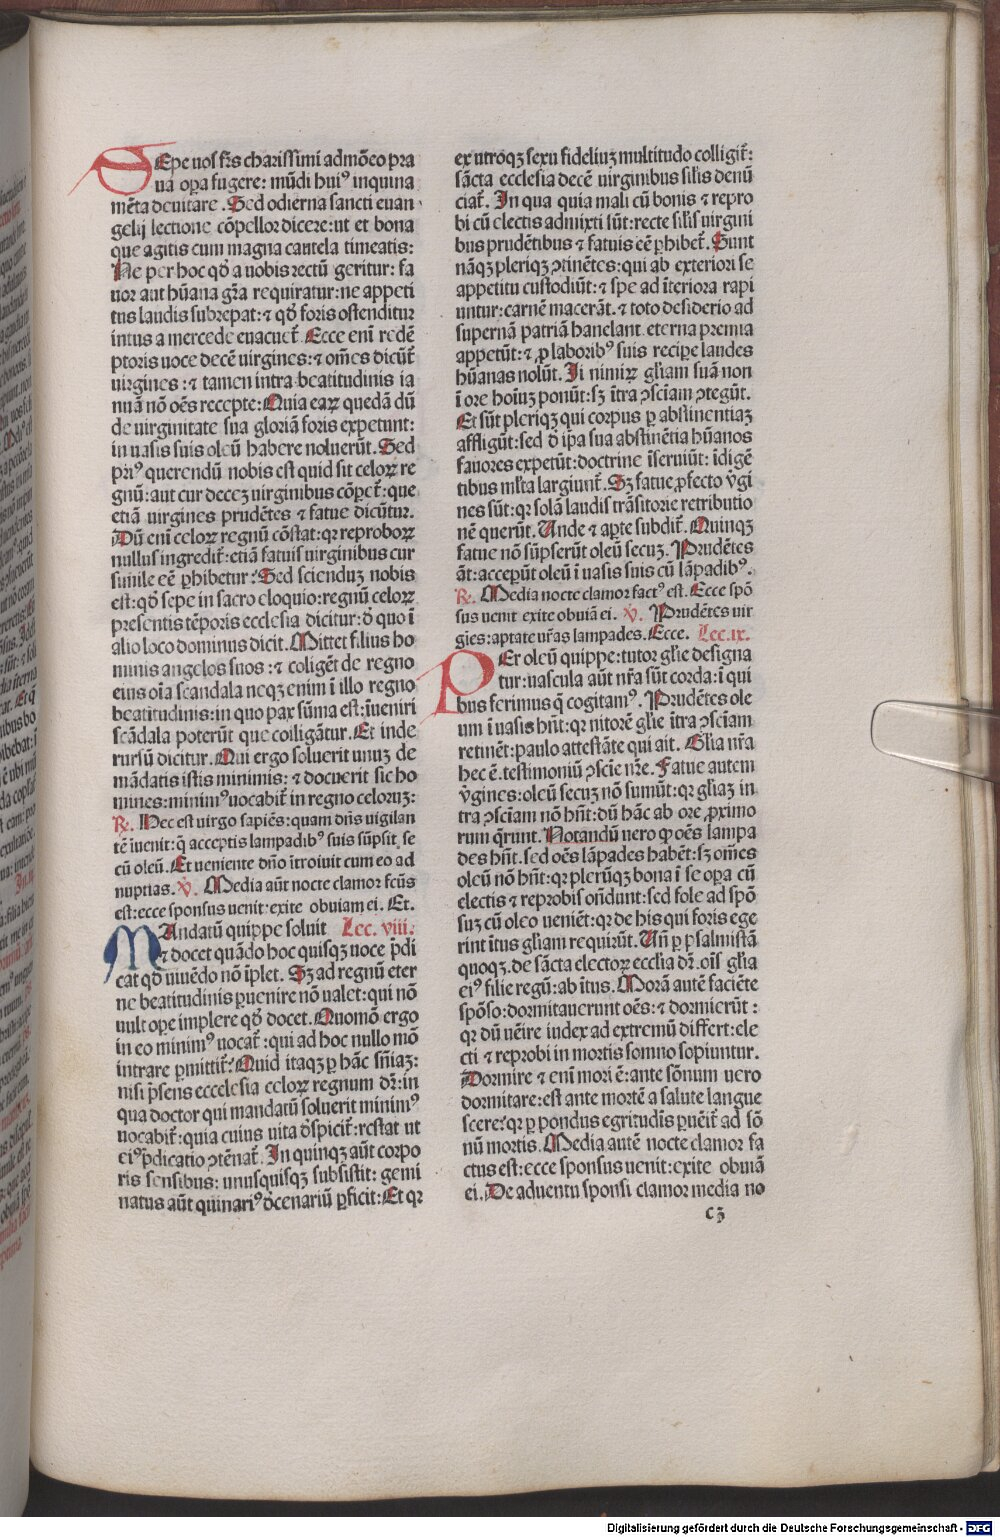 SEpe uos fr̃s charissimi admõeo pra
ua oꝑa fugere: mũdi huiꝰ inquina
mẽta deuitare. Sed odierna sancti euan
gelij lectione cõpellor dicere: ut et bona
que agitis cum magna cautela timeatis:
Ne per hoc qđ a uobis rectũ geritur: fa
uor aut hũana gr̃a requiratur: ne appeti
tus laudis subrepat: ⁊ qđ foris ostenditur
intus a mercede euacuet̃. Ecce eni redẽ
ptoris uoce decẽ virgines: ⁊ om̃es dicũt̃
uirgines: ⁊ tamen intra beatitudinis ia
nuã nõ oẽs recepte: Quia eaꝝ quedã dũ
de uirginitate sua gloriã foris expetunt:
in uasis suis oleũ habere noluerũt. Sed
priꝰ querendũ nobis est quid sit celoꝝ re
gnũ: aut cur decez uirginibus cõꝑet̃: que
etiã virgines prudẽtes ⁊ fatue dicũtur.
Dũ eni celoꝝ regnũ cõstat: qꝛ reproboꝝ
nullus ingredit̃: etiã fatuis uirginibus cur
simile eẽ ꝑhibetur? Sed scienduz nobis
est: qđ sepe in sacro eloquio: regnũ celoꝝ
presentis tẽporis ecclesia dicitur: đ quo ĩ
alio loco dominus dicit. Mittet filius ho
minis angelos suos: ⁊ coligẽt de regno
eius oĩa scandala neqꝫ enim ĩ illo regno
beatitudinis: in quo pax sũma est: ĩueniri
scãdala poterũt que colligãtur. Et inde
rursũ dicitur. Qui ergo soluerit unuz de
mãdatis istis minimis: ⁊ docuerit sic ho
mines: minimꝰ uocabit̃ in regno celoruz:
℞. Hec est uirgo sapiẽs: quam dñs uigilan
tẽ ĩuenit: q̃ acceptis lampadibꝰ suis sũpsit se
cũ oleũ. Et ueniente dño ĩtroiuit cum eo ad
nuptias. ℣. Media aũt nocte clamor fcũs
est: ecce sponsus uenit: exite obuiam ei. Et.
MAndatũ quippe soluit Lec. viii.
⁊ docet quãdo hoc quisqꝫ uoce p̃di
cat qđ uiuẽdo nõ ĩplet. Sꝫ ad regnũ eter
ne beatitudinis ꝑuenire nõ ualet: qui nõ
uult oꝑe implere qđ docet. Quomõ ergo
in eo minimꝰ uocat̃: qui ad hoc nullo mõ
intrare ꝑmittit̃? Quid itaqꝫ ꝑ hãc sñiaz:
nisi p̃sens eccclesia celoꝝ regnum dr̃: in
qua doctor qui mandatũ soluerit minimꝰ
uocabit̃: quia cuius uita đspicit̃: restat ut
eiꝰ p̃dicatio ꝯtẽnat̃. In quinqꝫ aũt corpo
ris sensibus: unusquisqꝫ subsistit: gemi
natus aũt quinariꝰ đcenariũ ꝑficit: Et qꝛ
ex utroqꝫ sexu fideliuꝫ multitudo colligit̃:
sãcta ecclesia decẽ uirginibus silis denũ
ciat̃. In qua quia mali cũ bonis ⁊ repro
bi cũ electis admixti sũt: recte silis virgini
bus prudẽtibus ⁊ fatuis eẽ ꝑhibet̃. Sunt
nãqꝫ pleriqꝫ ꝯtinẽtes: qui ab exteriori se
appetitu custodiũt: ⁊ spe ad ĩteriora rapi
untur: carnẽ macerãt. ⁊ toto desiderio ad
supernã patriã hanelant. eterna premia
appetũt: ⁊ ꝓ laboribꝰ suis recipe laudes
hũanas nolũt. Ii nimiꝝ gl̃iam suã non
ĩ ore hoĩuz ponũt: sꝫ ĩtra ꝯsciam ꝯtegũt.
Et sũt pleriqꝫ qui corpus ꝑ abstinentiaz
affligũt: sed đ ip̃a sua abstinẽtia hũanos
fauores expetũt: doctrine ĩseruiũt: ĩdigẽ
tibus ml̃ta largiunt̃. Sꝫ fatue ꝓfecto v̾gi
nes sũt: qꝛ solã laudis trãsitorie retributio
nẽ querũt. Unde ⁊ aꝑte subdit̃. Quinqꝫ
fatue nõ sũpserũt oleũ secuz. Prudẽtes
ãt: acceꝑũt oleũ ĩ uasis suis cũ lãpadibꝰ.
℞. Media nocte clamor factꝰ est. Ecce spõ
sus uenit exite obuiã ei. ℣. Prudẽtes uir
gies: aptate ur̃as lampades. Ecce. Lec. ix.
PEr oleũ quippe: tutor gl̃ie designa
tur: uascula aũt nr̃a sũt corda: ĩ qui
bus ferimus q̃ cogitamꝰ. Prudẽtes ole
um ĩ uasis hñt: qꝛ nitorẽ gl̃ie ĩtra ꝯsciam
retinẽt: paulo attestãte qui ait. Gl̃ia nr̃a
hec ẽ. testimoniũ ꝯscie nr̃e. Fatue autem
v̾gines: oleũ secuz nõ sumũt: qꝛ gl̃iaz in
tra ꝯsciam nõ hñt: dũ hãc ab ore ꝓximo
rum q̃runt. Notandũ uero ꝙ oẽs lampa
des hñt. sed oẽs lãpades habẽt: sꝫ om̃es
oleũ nõ hñt: qꝛ pleruqꝫ bona ĩ se oꝑa cũ
electis ⁊ reprobis oñdunt: sed sole ad spõ
suz cũ oleo ueniẽt: qꝛ de his qui foris ege
rint ĩtus gl̃iam requirũt. Uñ ꝑ psalmistã
quoqꝫ. de sãcta electoꝝ eccl̃ia dr̃. oĩs gl̃ia
eiꝰ filie regũ: ab ĩtus. Morã autẽ faciẽte
spõso: dormitauerunt oẽs: ⁊ dormierũt:
qꝛ dũ uẽire iudex ad extremũ differt: ele
cti ⁊ reprobi in mortis somno sopiuntur.
Dormire ⁊ enĩ mori ẽ: ante sõnum uero
dormitare: est ante mortẽ a salute langue
scere: qꝛ ꝑ pondus egritudĩs ꝑuẽit̃ ad sõ
nũ mortis. Media autẽ nocte clamor fa
ctus est: ecce sponsus uenit: exite obuiã
ei. De aduentu sponsi clamor media no
c3
Digitalisierung gefördert durch die Deutsche Forschungsgemeinschaft - DFG